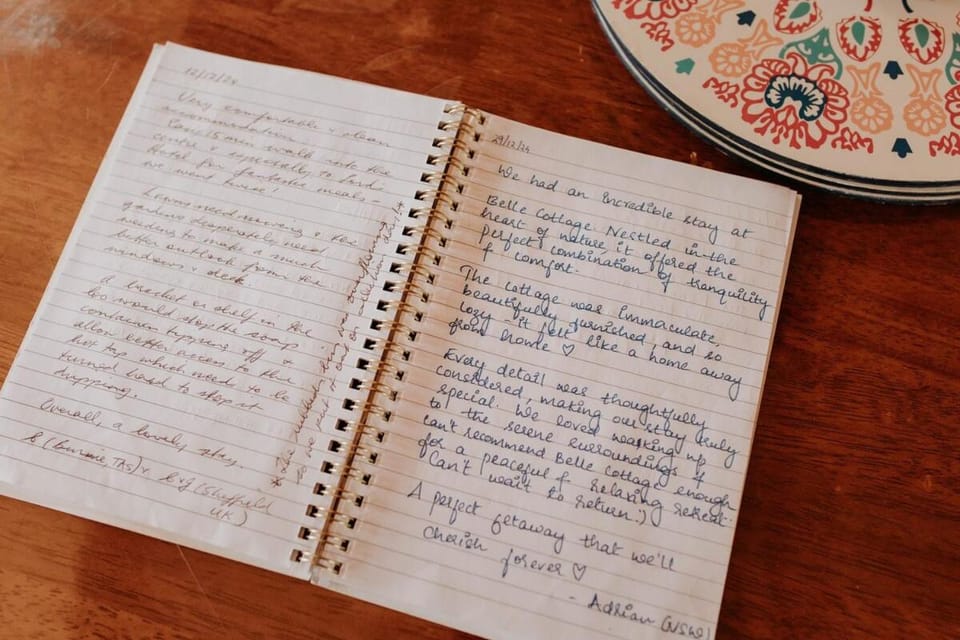 12/12/24
Very comfortable & clean
accommodation
Easy 15 min walk into the
centre & especially to
Hotel for fantastic meals -
we went twice!
Lawns need mowing & the
gardens desperately need
weeding to make a much
better outlook from the
windows & deck
A bracket or shelf in the
would stop the soap
container tipping off &
allow better access to the
hot tap which needs to be
turned hard to stop it
dripping.
Overall, a lovely stay.
(Burnie, TAS) &
(Sheffield
UK)
so we put it out for cleaning
29/12/24
We had an incredible stay at
Belle Cottage Nestled in the
heart of nature it offered the
perfect combination of tranquility
& comfort.
The cottage was immaculate,
beautifully furnished and so
cozy - it felt like a home away
from home ♡
Every detail was thoughtfully
considered, making our stay truly
special. We loved waking up
to the serene surroundings &
can't recommend Belle Cottage enough
for a peaceful & relaxing retreat.
Can't wait to return:)
A perfect getaway that we'll
cherish forever ♡
- Adrian (NSW)